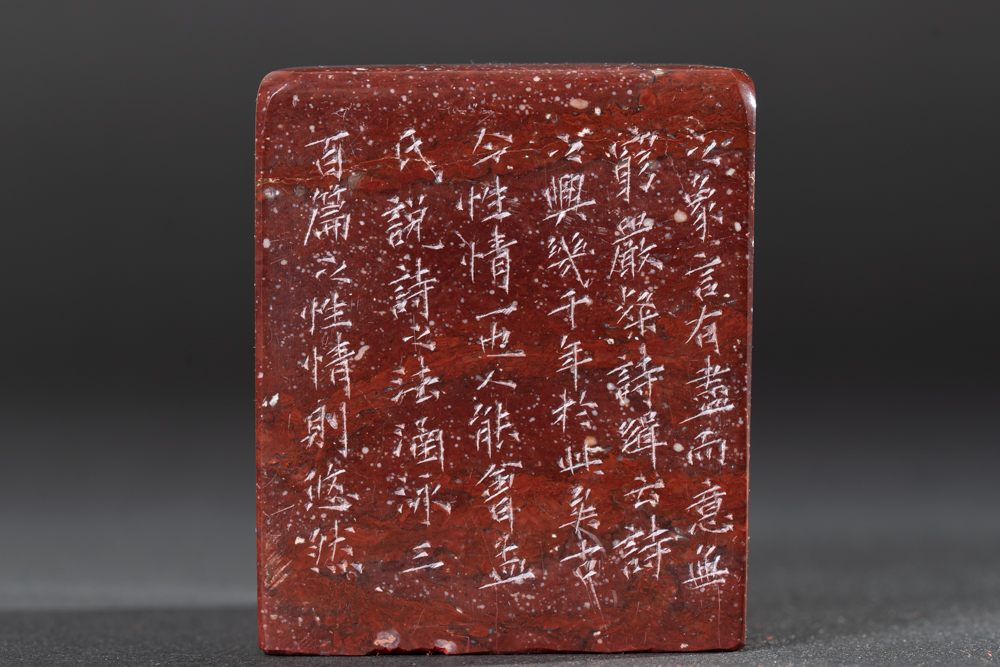 之象言有盡而意無
窮嚴粲詩緝云詩
之興幾千年於此矣古
今性情一也人能會孟
氏說詩之法涵泳三
百篇之性情則悠然